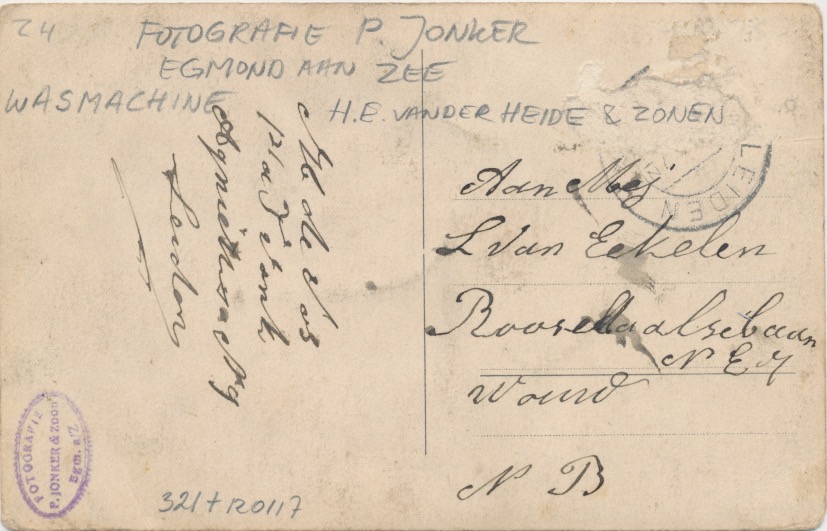 24
FOTOGRAFIE P. JONKER
EGMOND AAN ZEE
WASMACHINE H.E. VAN DER HEIDE & ZONEN
M de Vos
Leiden
LEIDEN
Aan Mej
L Van Eekelen
Roosendaalsebaan
N E 7
Wouw
N B
FOTOGRAFIE
P. JONKER & ZOON
Egm. a/Z.
321+120117